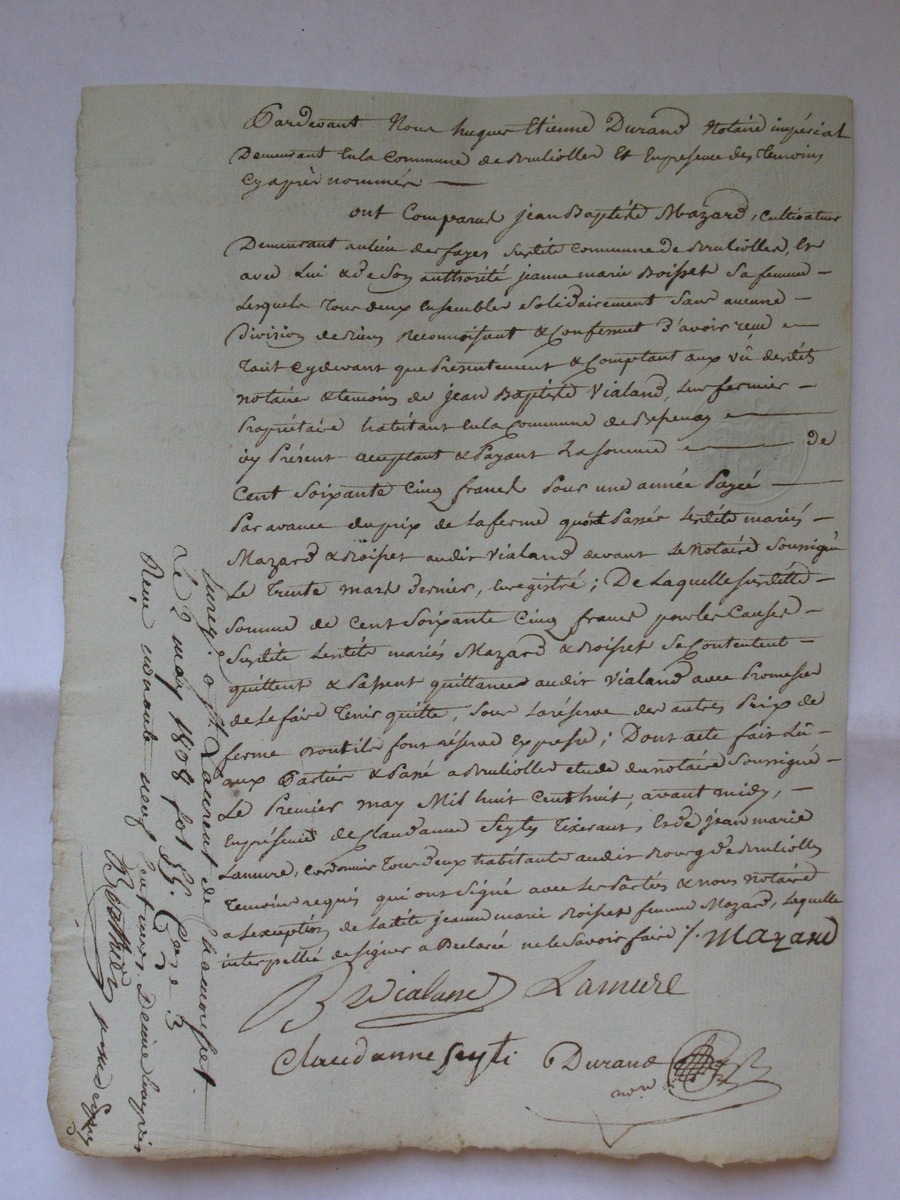 Pardevant Nous hugues Etienne Durand Notaire impérial
Demeurant En la Commune de Brullioles Et En presence des Temoins
Cy après nommés
ont Comparus jean Baptiste Mazard, Cultivateur
Demeurant au lieu des fayes Susdite Commune de Brullioles, Et
avec Lui & de Son authorité jeanne marie Boisset Sa femme
Lesquels Tous deux Ensembles Solidairement Sans aucune
Division de Biens Reconnoissent & Confessent D'avoir reçu
Tant cy devant que Présentement & Comptant aux vû desdits
notaire & temoins de jean Baptiste Vialand, Leur fermier
Propriétaire habitant En la Commune de
icy Présent acceptant & Payant La Somme de
Cent Soixante Cinq francs Pour une année Payée
Par avance du prix de La ferme qu'ont Passée Lesdits mariés
Mazard & Boisset audit Vialand devant Le Notaire Soussigné
Le Trente mars dernier, Enregistré ; De Laquelle Susdite
Somme de Cent Soixante Cinq francs pour les Causes
Susdite Lesdits mariés Mazard & Boisset Se Contentent
quittent & Passent quittance audit Vialand avec Promesse
de Le faire Tenir quitte, Sous La réserve des autres Prix de
ferme dont ils font réserve Expresse ; Dont acte fait Lû
aux Parties & Passé a Brullioles Etude du notaire Soussigné
Le Premier may Mil huit Cent huit, avant midy,
En présence de Claud'anne Seyty Tixerant, Et de jean marie
Lamure, Cordonnier Tous deux habitants audit Bourg de Brullioles
Temoins requis qui ont Signé avec Les Parties & nous Notaire
a L'exception de Ladite jeanne marie Boisset femme Mazard, Laquelle
interpellée de Signer a Déclaré ne le Savoir faire /. Mazard
B Vialand Lamure
Claudanne Seyti Durand
nore
Enregé. a St Laurent de Chamousset
Le 2 may 1808 fol 88 Case 3
Reçu quarante neuf centimes Decime Compris